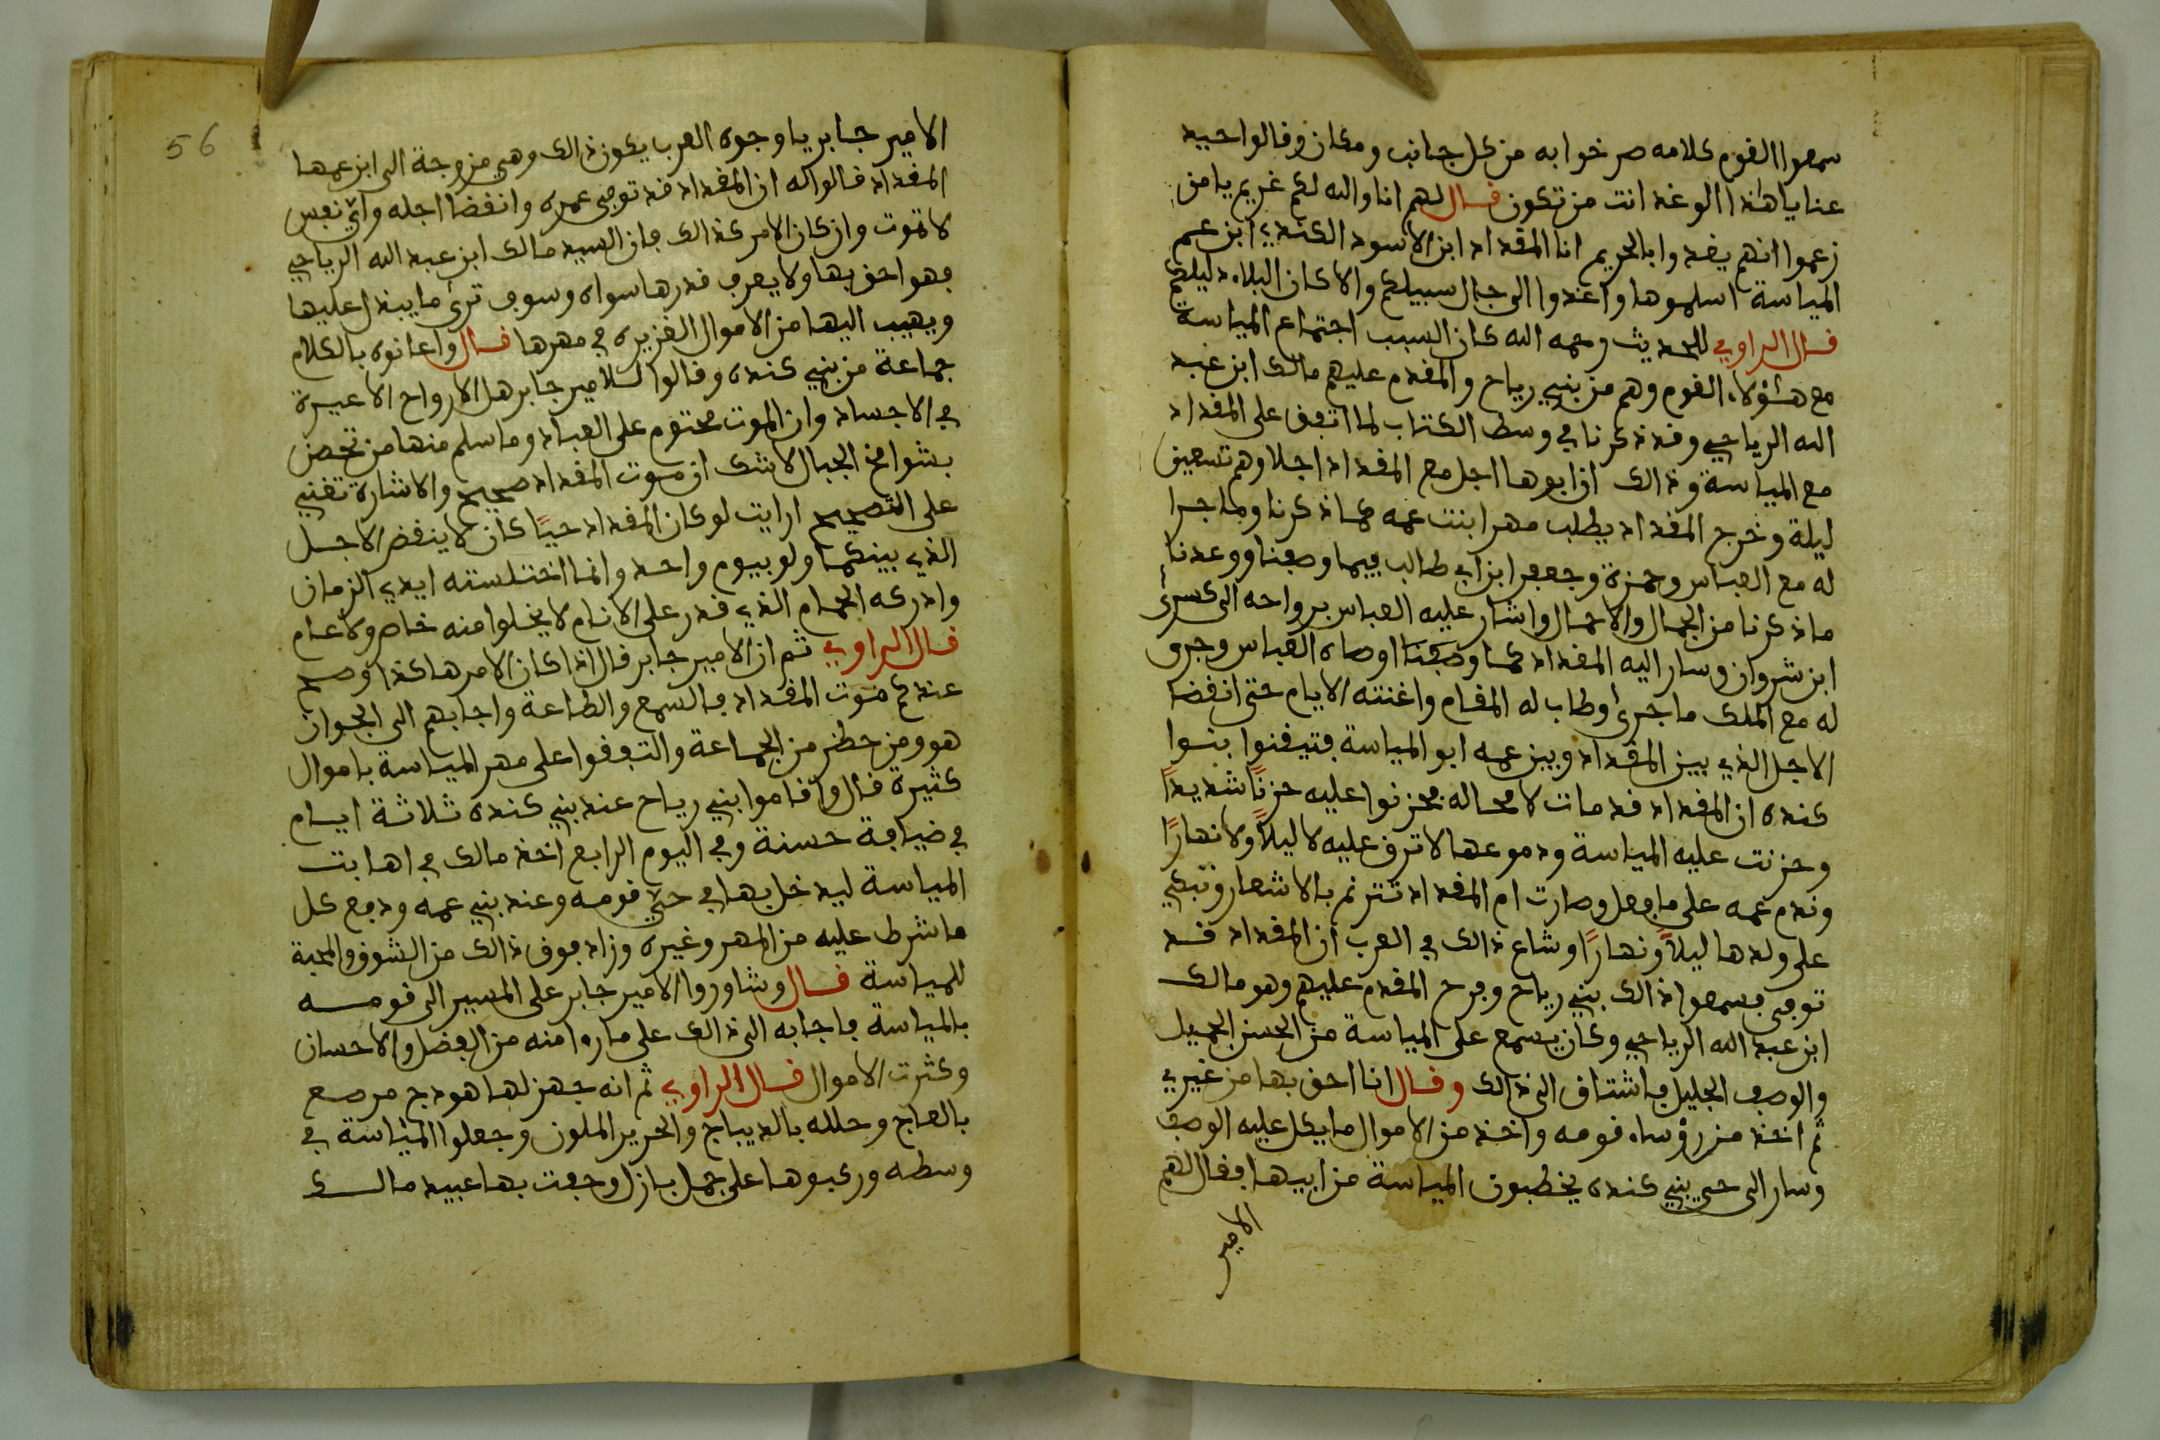 سمعوا القوم كلامه صرخوا به من كل جانب ومكان وقالوا حيد
عنا يا هذا الوغد انت من تكون قال لهم انا والله لكم غريم يا من
زعموا انهم يفدوا بالحريم انا المقداد ابن الاسود الكندي ابن عم
المياسة اسلموها واغدوا الى حال سبيلكم والا كان البلاء دليلكم
قال الراوي للحديث رحمه الله كان السبب اجتماع المياسة
مع هٰؤلاء القوم وهم من بني رياح والمقدم عليهم مالك ابن عبد
الله الرياحي وقد ذكرنا في وسط الكتاب لما اتفق على المقداد
مع المياسة وذالك ان ابوها اجل مع المقداد اجلا وهم تسعين
ليلة وخرج المقداد يطلب مهر ابنت عمه كما ذكرنا وبما جرا
له مع العباس وحمزة وجعفر ابن ابي طالب فيما وصفنا ووعدنا
ما ذكرنا من الجمال والاحمال واشار عليه العباس برواحه الى كسرى
ابن شروان وسار اليه المقداد كما وصفنا اوصاه العباس وجرى
له مع الملك ما جرى وطاب له المقام واغنته الايام حتى انقضا
الاجل الذي بين المقداد وبين عمه ابو المياسة فتيقنوا بنوا
كنده ان المقداد قد مات لا محاله فحزنوا عليه حزنًا شديدًا
وحزنت عليه المياسة ودموعها لا ترق عليه لا ليلاً ولا نهارًا
وندم عمه على ما فعل وصارت ام المقداد تترنم بالاشعار وتبكي
على ولدها ليلاً ونهارًا وشاع ذالك في العرب ان المقداد قد
توفى فسمعوا ذالك بني رياح وفرح المقدم عليهم وهو مالك
ابن عبد الله الرياحي وكان يسمع على المياسة من الحسن الجميل
والوصف الجليل فاشتاق الى ذالك وقال انا احق بها من غيري
ثم اخذ من رؤساء قومه واخذ من الاموال ما يكل عليه الوصف
وسار الى حي بني كنده يخطبون المياسة من ابيها فقال لهم
الامير
56
الامير جابر يا وجوه العرب يكون ذالك وهي مزوجة الى ابن عمها
المقداد قالوا له ان المقداد قد توفى عمره وانقضا اجله واي نفس
لا تموت وان كان الامر كذالك فان السيد مالك ابن عبد الله الرياحي
فهو احق بها ولا يعرف قدرها سواه وسوف ترى ما يبذل عليها
ويهيب اليها من الاموال الغزيره في مهرها قال واعانوه بالكلام
جماعة من بني كنده وقالوا للامير جابر هل الارواح الا عيرة
في الاجساد وان الموت محتوم على العباد وما سلم منها من تحصن
بشوامخ الجبال لا شك ان موت المقداد صحيح والاشارة تغني
على التصحيح ارايت لو كان المقداد حيًا كان لا ينقض الاجل
الذي بينكما ولو بيوم واحد وانما اختلسته ايدي الزمان
وادركه الحمام الذي قدر على الانام لا يخلوا منه خاص ولا عام
قال الراوي ثم ان الامير جابر قال اذا كان الامر هاكذا وصح
عندكم موت المقداد فالسمع والطاعة واجابهم الى الجواز
هو ومن حظر من الجماعة والتفقوا على مهر المياسة باموال
كثيرة قال واقاموا بني رياح عند بني كنده ثلاثة ايام
في ضيافة حسنة وفي اليوم الرابع اخذ مالك في اهابت
المياسة ليدخل بها في حي قومه وعند بني عمه ودفع كل
ما شرط عليه من المهر وغيره وزاد فوق ذالك من الشوق والمحبة
للمياسة قال وشاوروا الامير جابر على المسير الى قومه
بالمياسة فاجابه الى ذالك على ما راوا منه من الفضل والاحسان
وكثرت الاموال قال الراوي ثم انه جهز لها هودج مرصع
بالعاج وحلله بالديباج والحرير الملون وجعلوا المياسة في
وسطه وركبوها على جمل بازل وحفت بها عبيد مالك